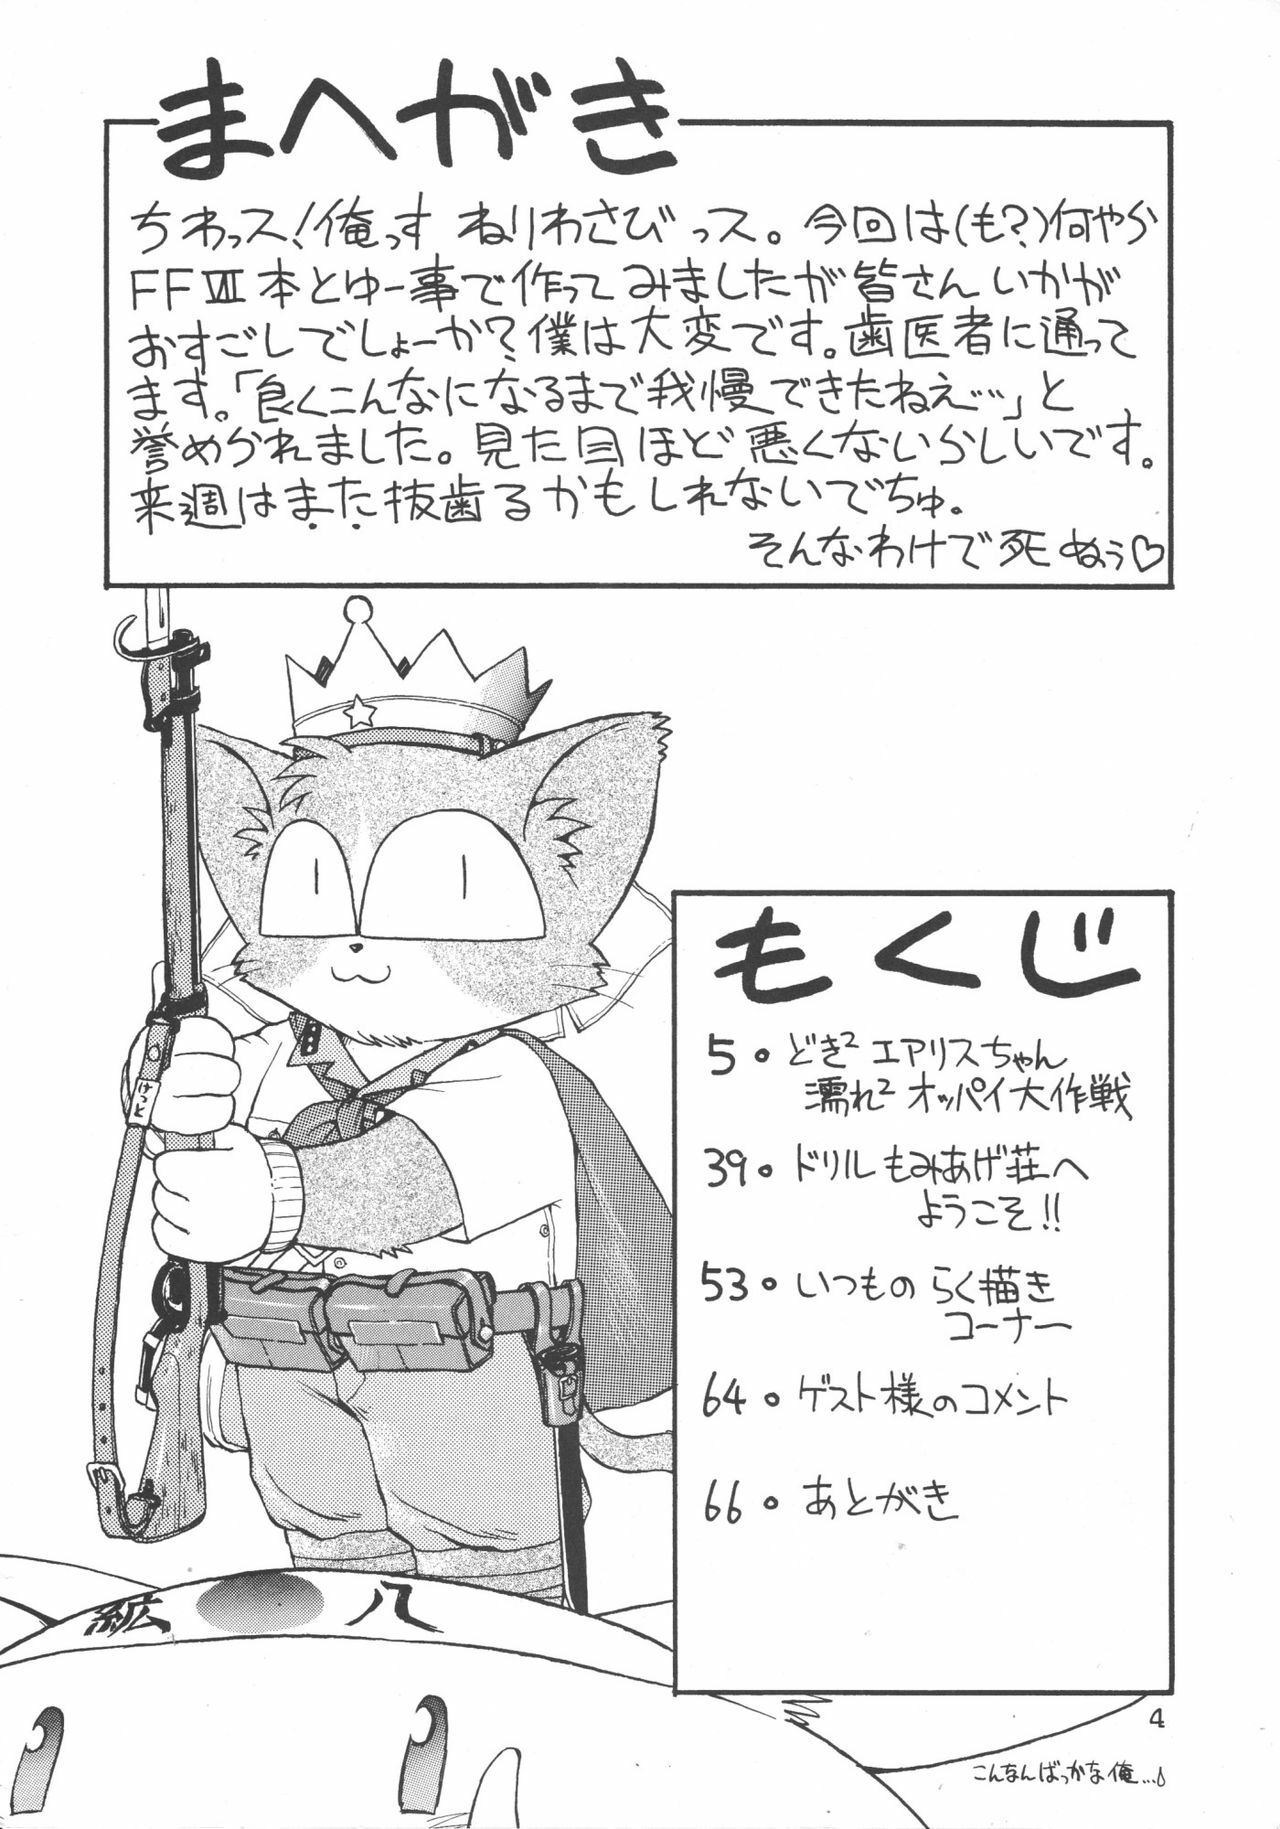 まへがき
ちわっス!俺っす ねりわさびっス。今回は(も?)何やら
FFⅦ本とゆー事で作ってみましたが皆さんいかが
おすごしでしょーか?僕は大変です。歯医者に通って
ます。「良くこんなになるまで我慢できたねえ…」と
誉められました。見た目ほど悪くないらしいです。
来週はまた抜歯るかもしれないでちゅ。
そんなわけで死ぬぅ♡
けっと
もくじ
5・どき² エアリスちゃん
濡れ² オッパイ大作戦
39・ドリルもみあげ荘へ
ようこそ!!
53・いつものらく描き
コーナー
64・ゲスト様のコメント
66・あとがき
紘 八
4
こんなんばっかな俺…♪